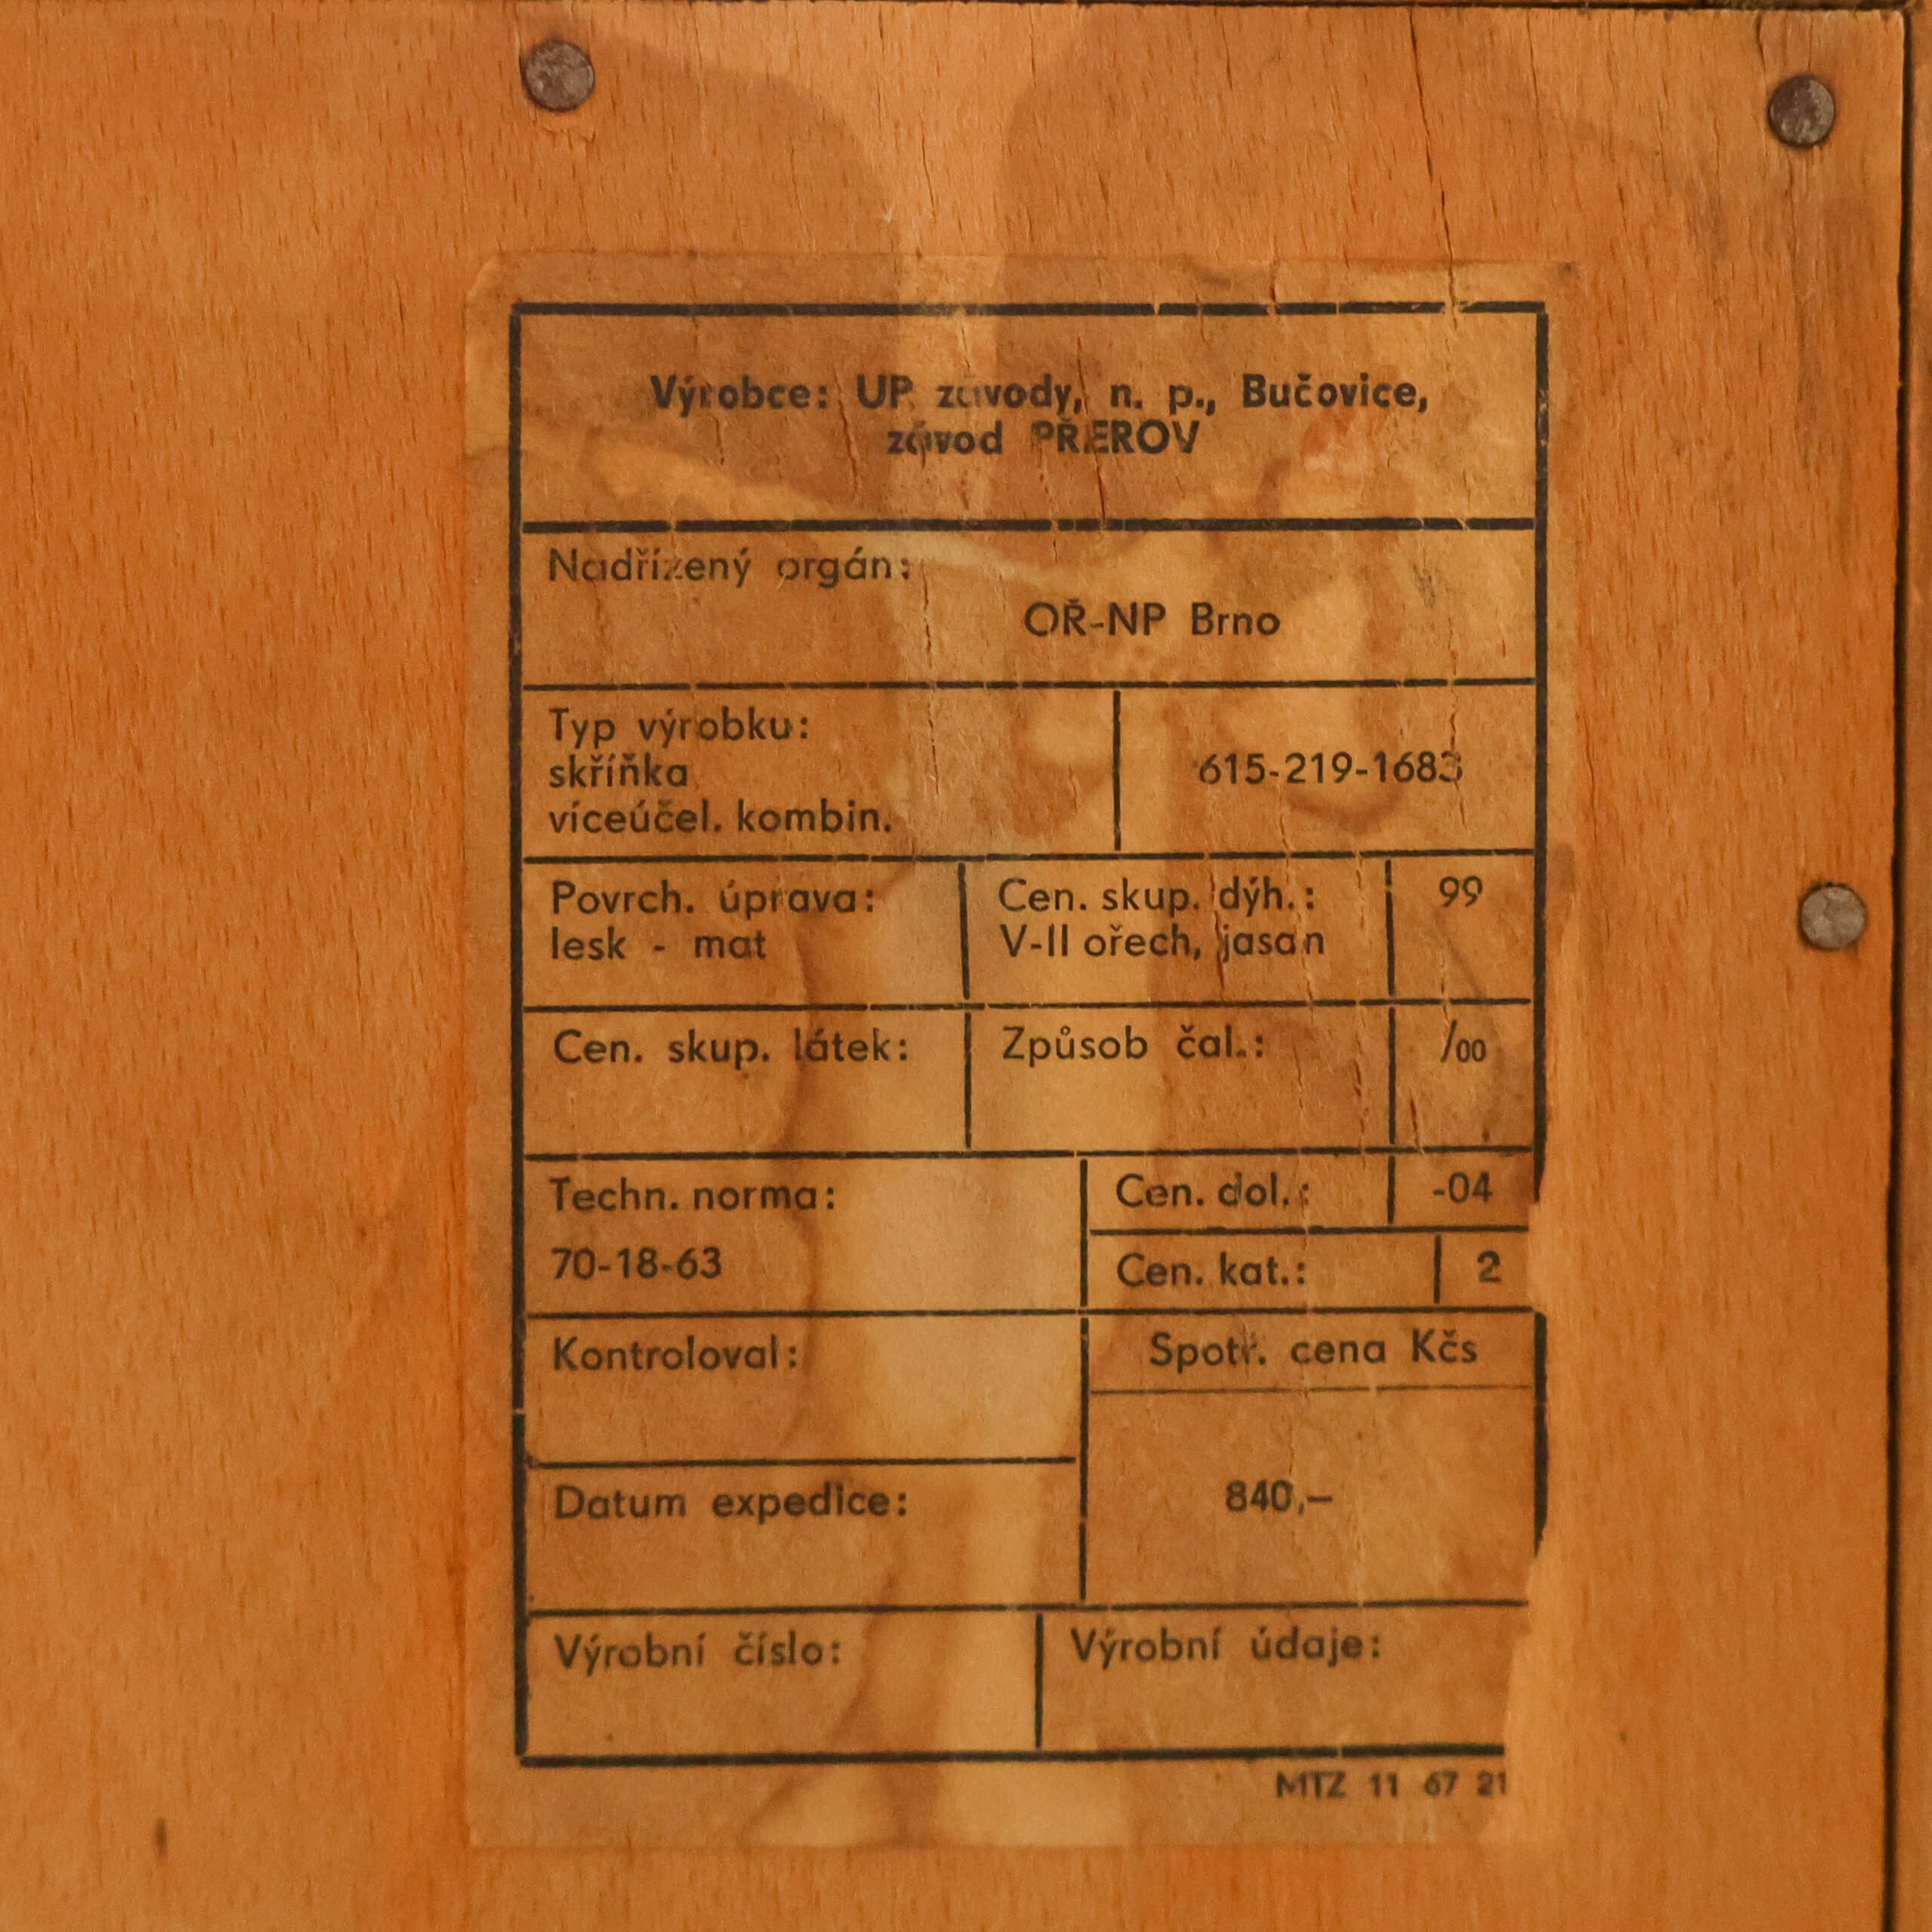 Výrobce: UP závody, n. p., Bučovice,
závod PŘEROV
Nadřízený orgán:
OŘ-NP Brno
Typ výrobku:
skříňka
víceúčel. kombin.
615-219-1683
Povrch. úprava:
lesk - mat
Cen. skup. dýh.:
V-II ořech, jasan
99
Cen. skup. látek:
Způsob čal.:
/00
Techn. norma:
70-18-63
Cen. dol.:
-04
Cen. kat.:
2
Kontroloval:
Spotř. cena Kčs
Datum expedice:
840,—
Výrobní číslo:
Výrobní údaje:
MTZ 11 67 21